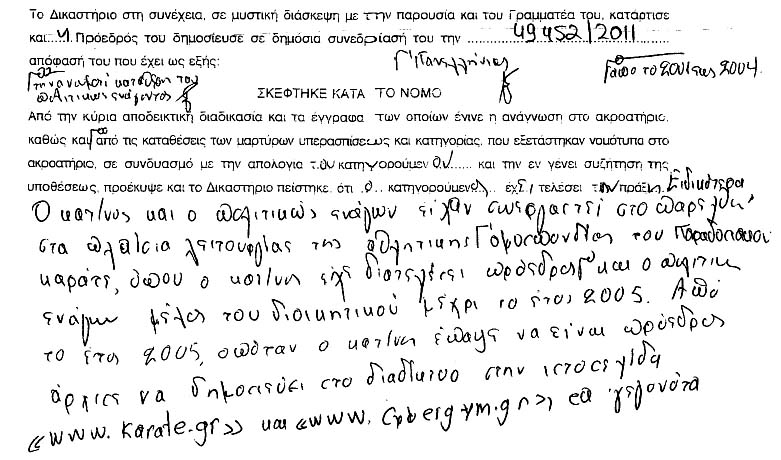 Το Δικαστήριο στη συνέχεια, σε μυστική διάσκεψη με την παρουσία και του Γραμματέα του, κατάρτισε
και Η Πρόεδρός του δημοσίευσε σε δημόσια συνεδρίασή του την 49452/2011
απόφασή του που έχει ως εξής:
Γ' Πανελλήνιας
Γαπο το 2001 εως 2004.
την αναφορά κατάθεση του
πολιτικώς ενάγοντος
ΣΚΕΦΤΗΚΕ ΚΑΤΑ ΤΟ ΝΟΜΟ
Από την κύρια αποδεικτική διαδικασία και τα έγγραφα των οποίων έγινε η ανάγνωση στο ακροατήριο,
καθώς και από τις καταθέσεις των μαρτύρων υπερασπίσεως και κατηγορίας, που εξετάστηκαν νομότυπα στο
ακροατήριο, σε συνδυασμό με την απολογία του κατηγορούμενου και την εν γένει συζήτηση της
υποθέσεως, προέκυψε και το Δικαστήριο πείστηκε ότι ο κατηγορούμενος έχει τελέσει την πράξη. Ειδικότερα
Ο κατ/νος και ο πολιτικώς ενάγων είχαν συνεργαστεί στο παρελθόν
στα πλαίσια λειτουργίας της αθλητικής Γ Ομοσπονδίας του Παραδοσιακού
καράτε, όπου ο κατ/νος είχε διατελέσει πρόεδρος Γ και ο πολιτικ
ενάγων μέλος του διοικητικού μέχρι το έτος 2005. Από
το έτος 2005, οπόταν ο κατ/νος έπαψε να είναι πρόεδρος
άρχισε να δημοσιεύει στο διαδίκτυο στην ιστοσελίδα
«www.karate.gr» και «www.cybergym.gr» γεγονότα